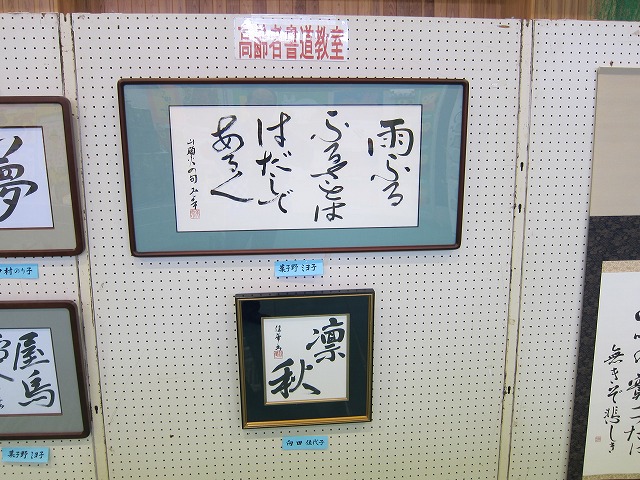 高齢者書道教室
雨ふる
ふるさとは
はだしで
あるく
山頭火の句
凛
秋
夢
村のり子
菓子野 ミヨ子
向田 佳代子
菓子野 ミヨ子
屋烏
無きぞ悲しき